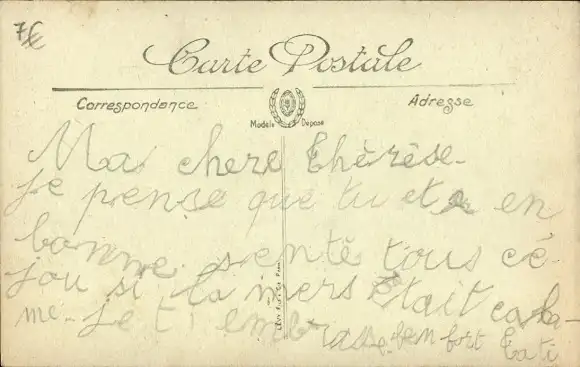 7€
Carte Postale
Correspondance
Adresse
Modèle Déposé
Ma chere Thérèse.
Je pense que tu et en
bonne senté tous cé
jou si la mers était cala-
me. Je t'embrasse. bem fort Tati